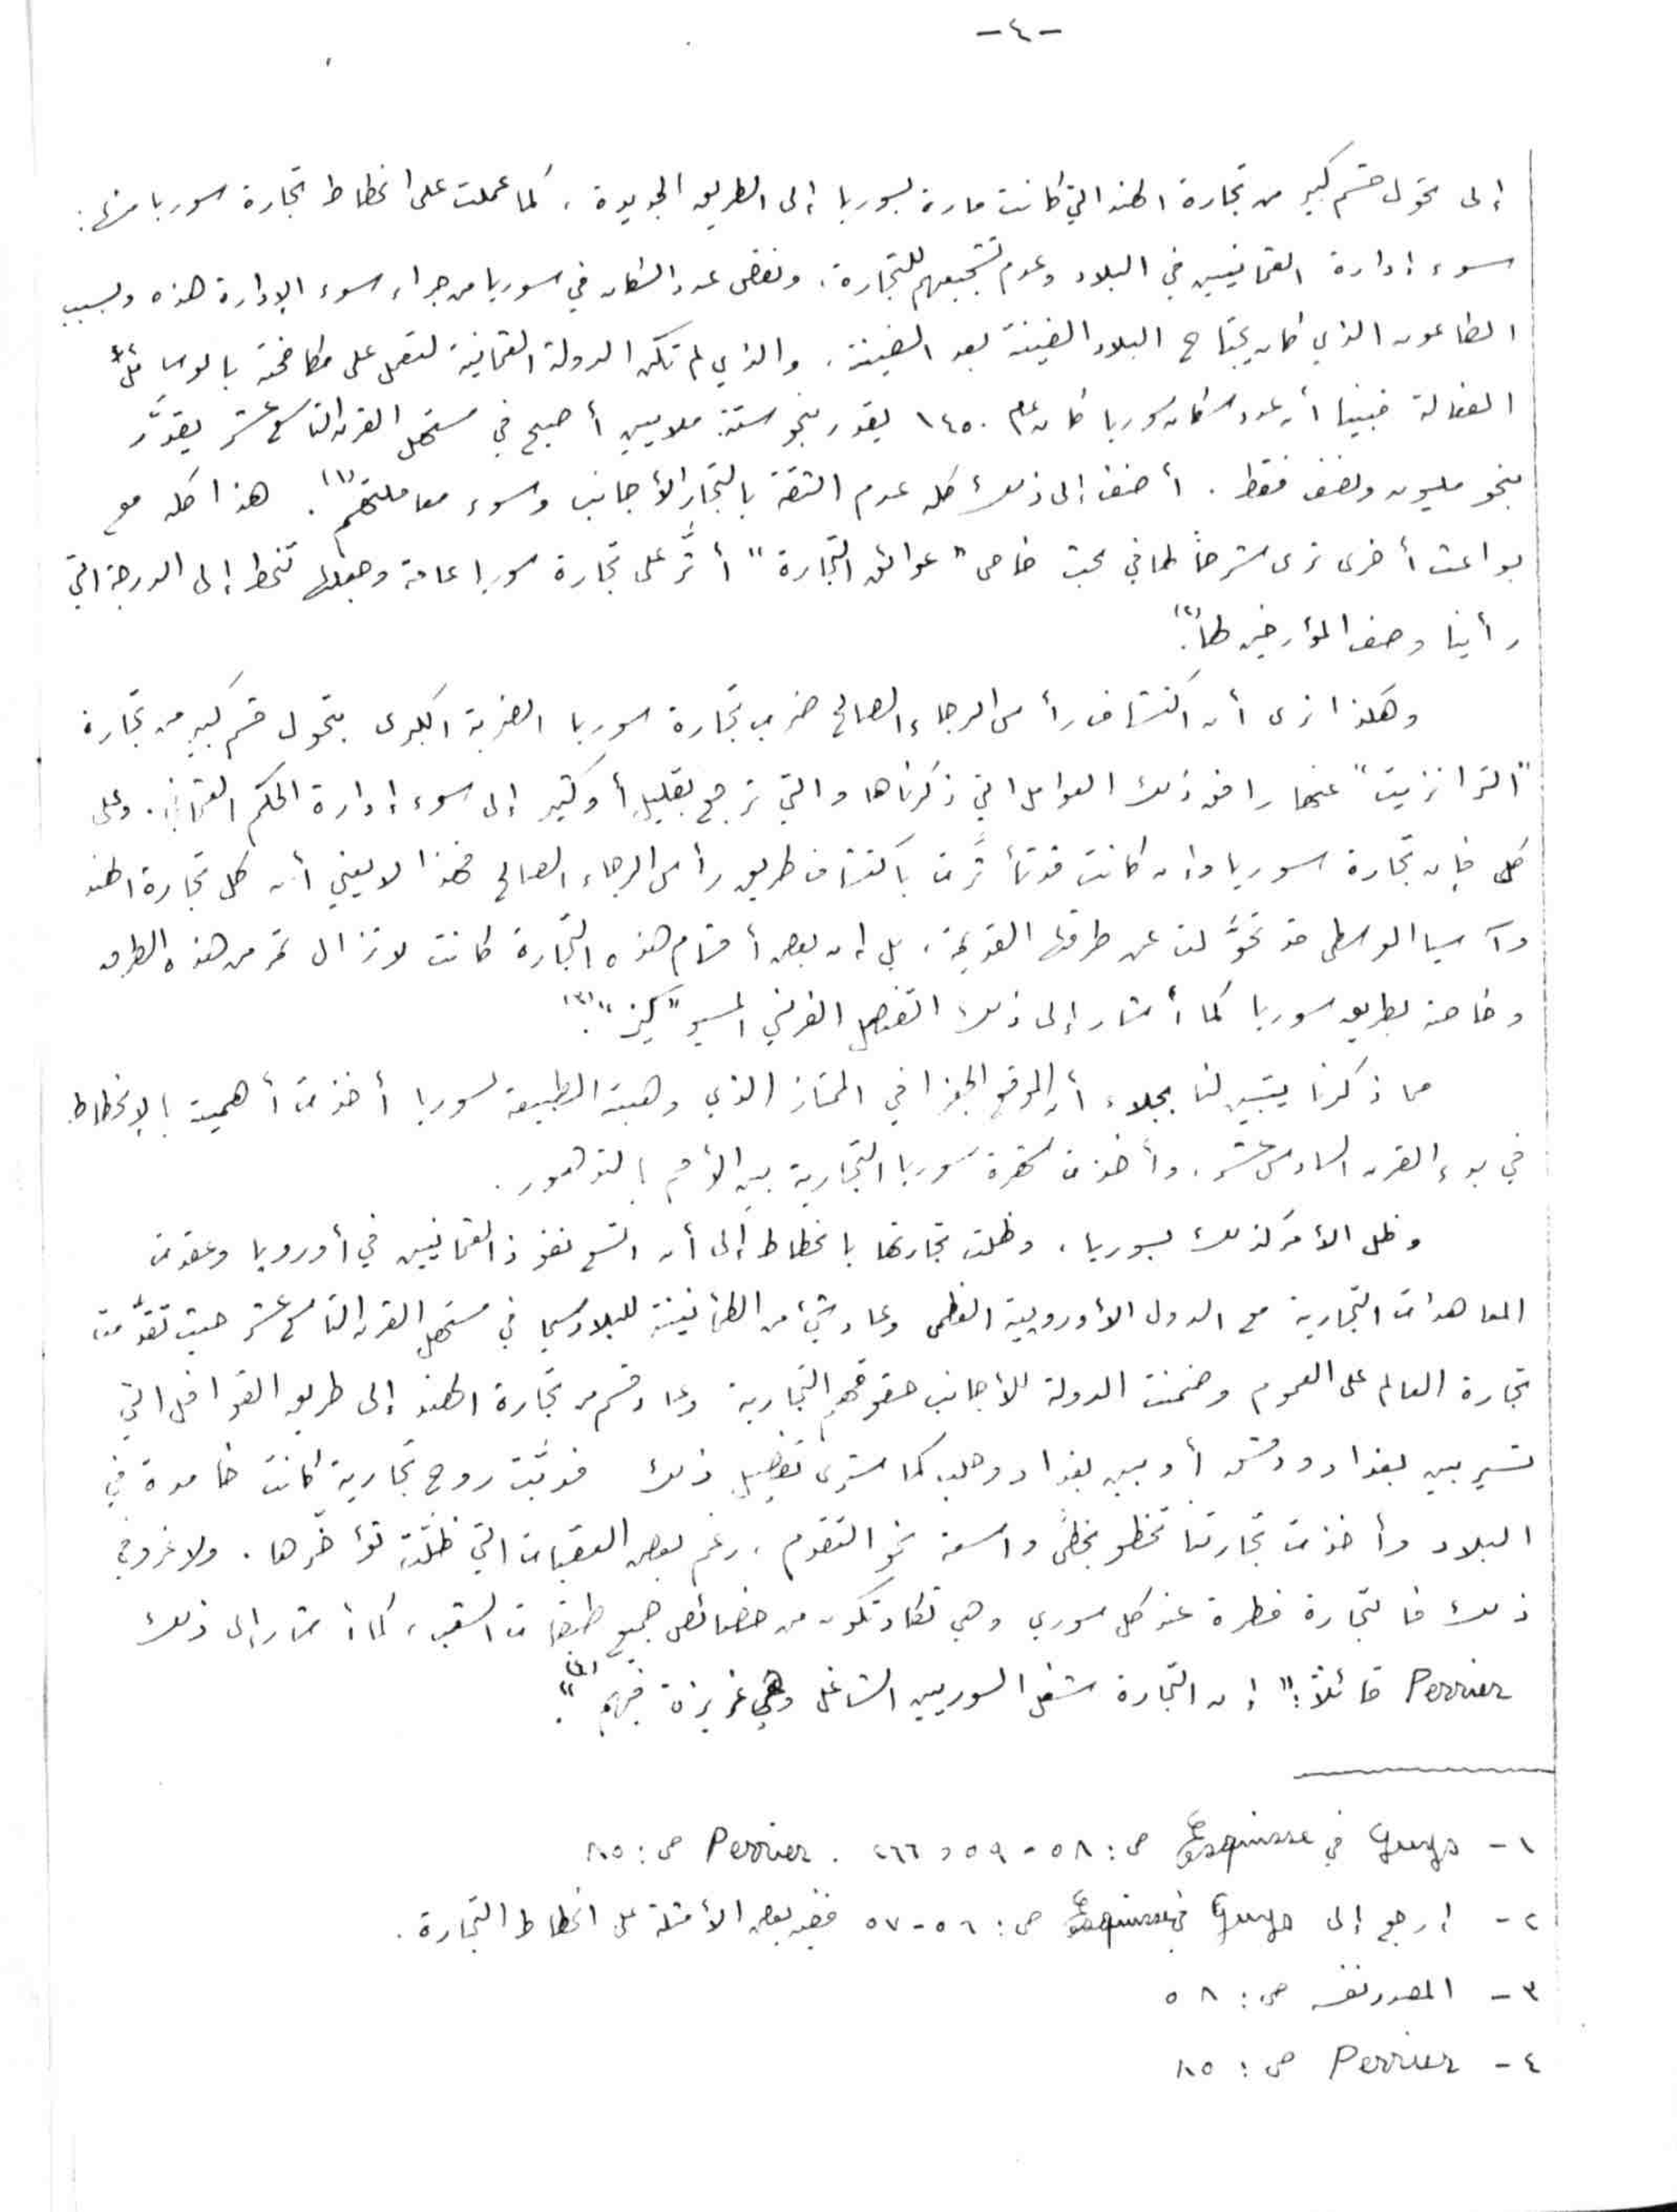 -٤-
إلى تحوّل قسم كبير من تجارة الهند التي كانت مارة بسوريا إلى الطريق الجديدة، كما عملت على انحطاط تجارة سوريا منها:
سوء إدارة العثمانيين في البلاد وعدم تشجيعهم للتجارة، ونقص عدد السكان في سوريا من جراء سوء الإدارة هذه وبسبب
الطاعون الذي كان يجتاح البلاد الفينة بعد الفينة، والذي لم تكن الدولة العثمانية لتعمل على مكافحته بالوسائل
الفعالة فبينما أن عدد سكان سوريا كان عام ١٤٥٠ يقدر بنحو ستة ملايين أصبح في مستهل القرن التاسع عشر يقدَّر
بنحو مليون ونصف فقط. أضف إلى ذلك كله عدم الثقة بالتجار الأجانب وسوء معاملتهم(١). هذا كله مع
بواعث أخرى ترى شرحاً لها في بحث خاص "عوائق التجارة" أثَّر على تجارة سوريا عامة وجعلها تنحط إلى الدرجة التي
رأينا وصف المؤرخين لها(٢).
وهكذا نرى أن اكتشاف رأس الرجاء الصالح ضرب تجارة سوريا الضربة الكبرى بتحول قسم كبير من تجارة
"الترانزيت" عنها رافق ذلك العوامل التي ذكرناها والتي ترجع بقليل أو كثير إلى سوء إدارة الحكم العثماني. وعلى
كل فإن تجارة سوريا وإن كانت قد تأثَّرت باكتشاف طريق رأس الرجاء الصالح فهذا لا يعني أن كل تجارة الهند
وآسيا الوسطى قد تحوَّلت عن طرقها القديمة، بل إن بعض أقسام هذه التجارة كانت لا تزال تمر من هذه الطرق
وخاصة بطريق سوريا كما أشار إلى ذلك القنصل الفرنسي المسيو "كيز"(٣).
مما ذكرنا يتبين لنا بجلاء أن الموقع الجغرافي الممتاز الذي وهبته الطبيعة لسوريا أخذت أهميته بالإنحطاط
في بدء القرن السادس عشر، وأخذت شهرة سوريا التجارية بين الأمم بالتدهور.
وظل الأمر كذلك بسوريا، وظلت تجارتها بانحطاط إلى أن اتسع نفوذ العثمانيين في أوروبا وعقدت
المعاهدات التجارية مع الدول الأوروبية العظمى وعاد شيء من الطمأنينة للبلاد سيما في مستهل القرن التاسع عشر حيث تقدَّمت
تجارة العالم على العموم وضمنت الدولة للأجانب حقوقهم التجارية وعاد قسم من تجارة الهند إلى طريق القوافل التي
تسير بين بغداد ودمشق أو بين بغداد وحلب كما سترى تفصيل ذلك فدبَّت روح تجارية كانت خامدة في
البلاد وأخذت تجارتنا تخطو بخطىً واسعة نحو التقدم، رغم بعض العقبات التي ظلَّت تؤخّرها. ولا غرو في
ذلك فالتجارة فطرة عند كل سوري وهي تكاد تكون من خصائص جميع طبقات الشعب، كما أشار إلى ذلك
Perrier قائلاً: "إن التجارة شغل السوريين الشاغل وهي غريزة فيهم(٤)".
١- Guys في Esquisse ص: ٥٨-٥٩ و ٢٦٦. Perrier ص: ٨٥
٢- ارجع إلى Guys في Esquisse ص: ٥٦-٥٧ ففيه بعض الأمثلة على انحطاط التجارة.
٣- المصدر نفسه ص: ٥٨
٤- Perrier ص: ٨٥